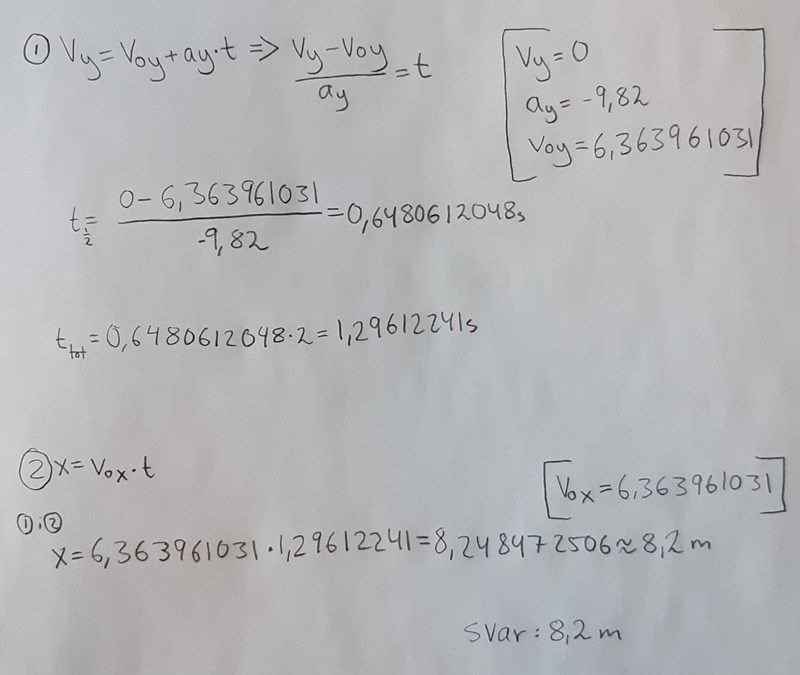 ① Vy = Voy + ay · t => (Vy - Voy) / ay = t
[Vy = 0
ay = -9,82
Voy = 6,363961031]
t½ = (0 - 6,363961031) / -9,82 = 0,6480612048s
ttot = 0,6480612048 · 2 = 1,29612241s
② x = Vox · t
[Vox = 6,363961031]
① i ②
x = 6,363961031 · 1,29612241 = 8,248472506 ≈ 8,2 m
svar: 8,2 m